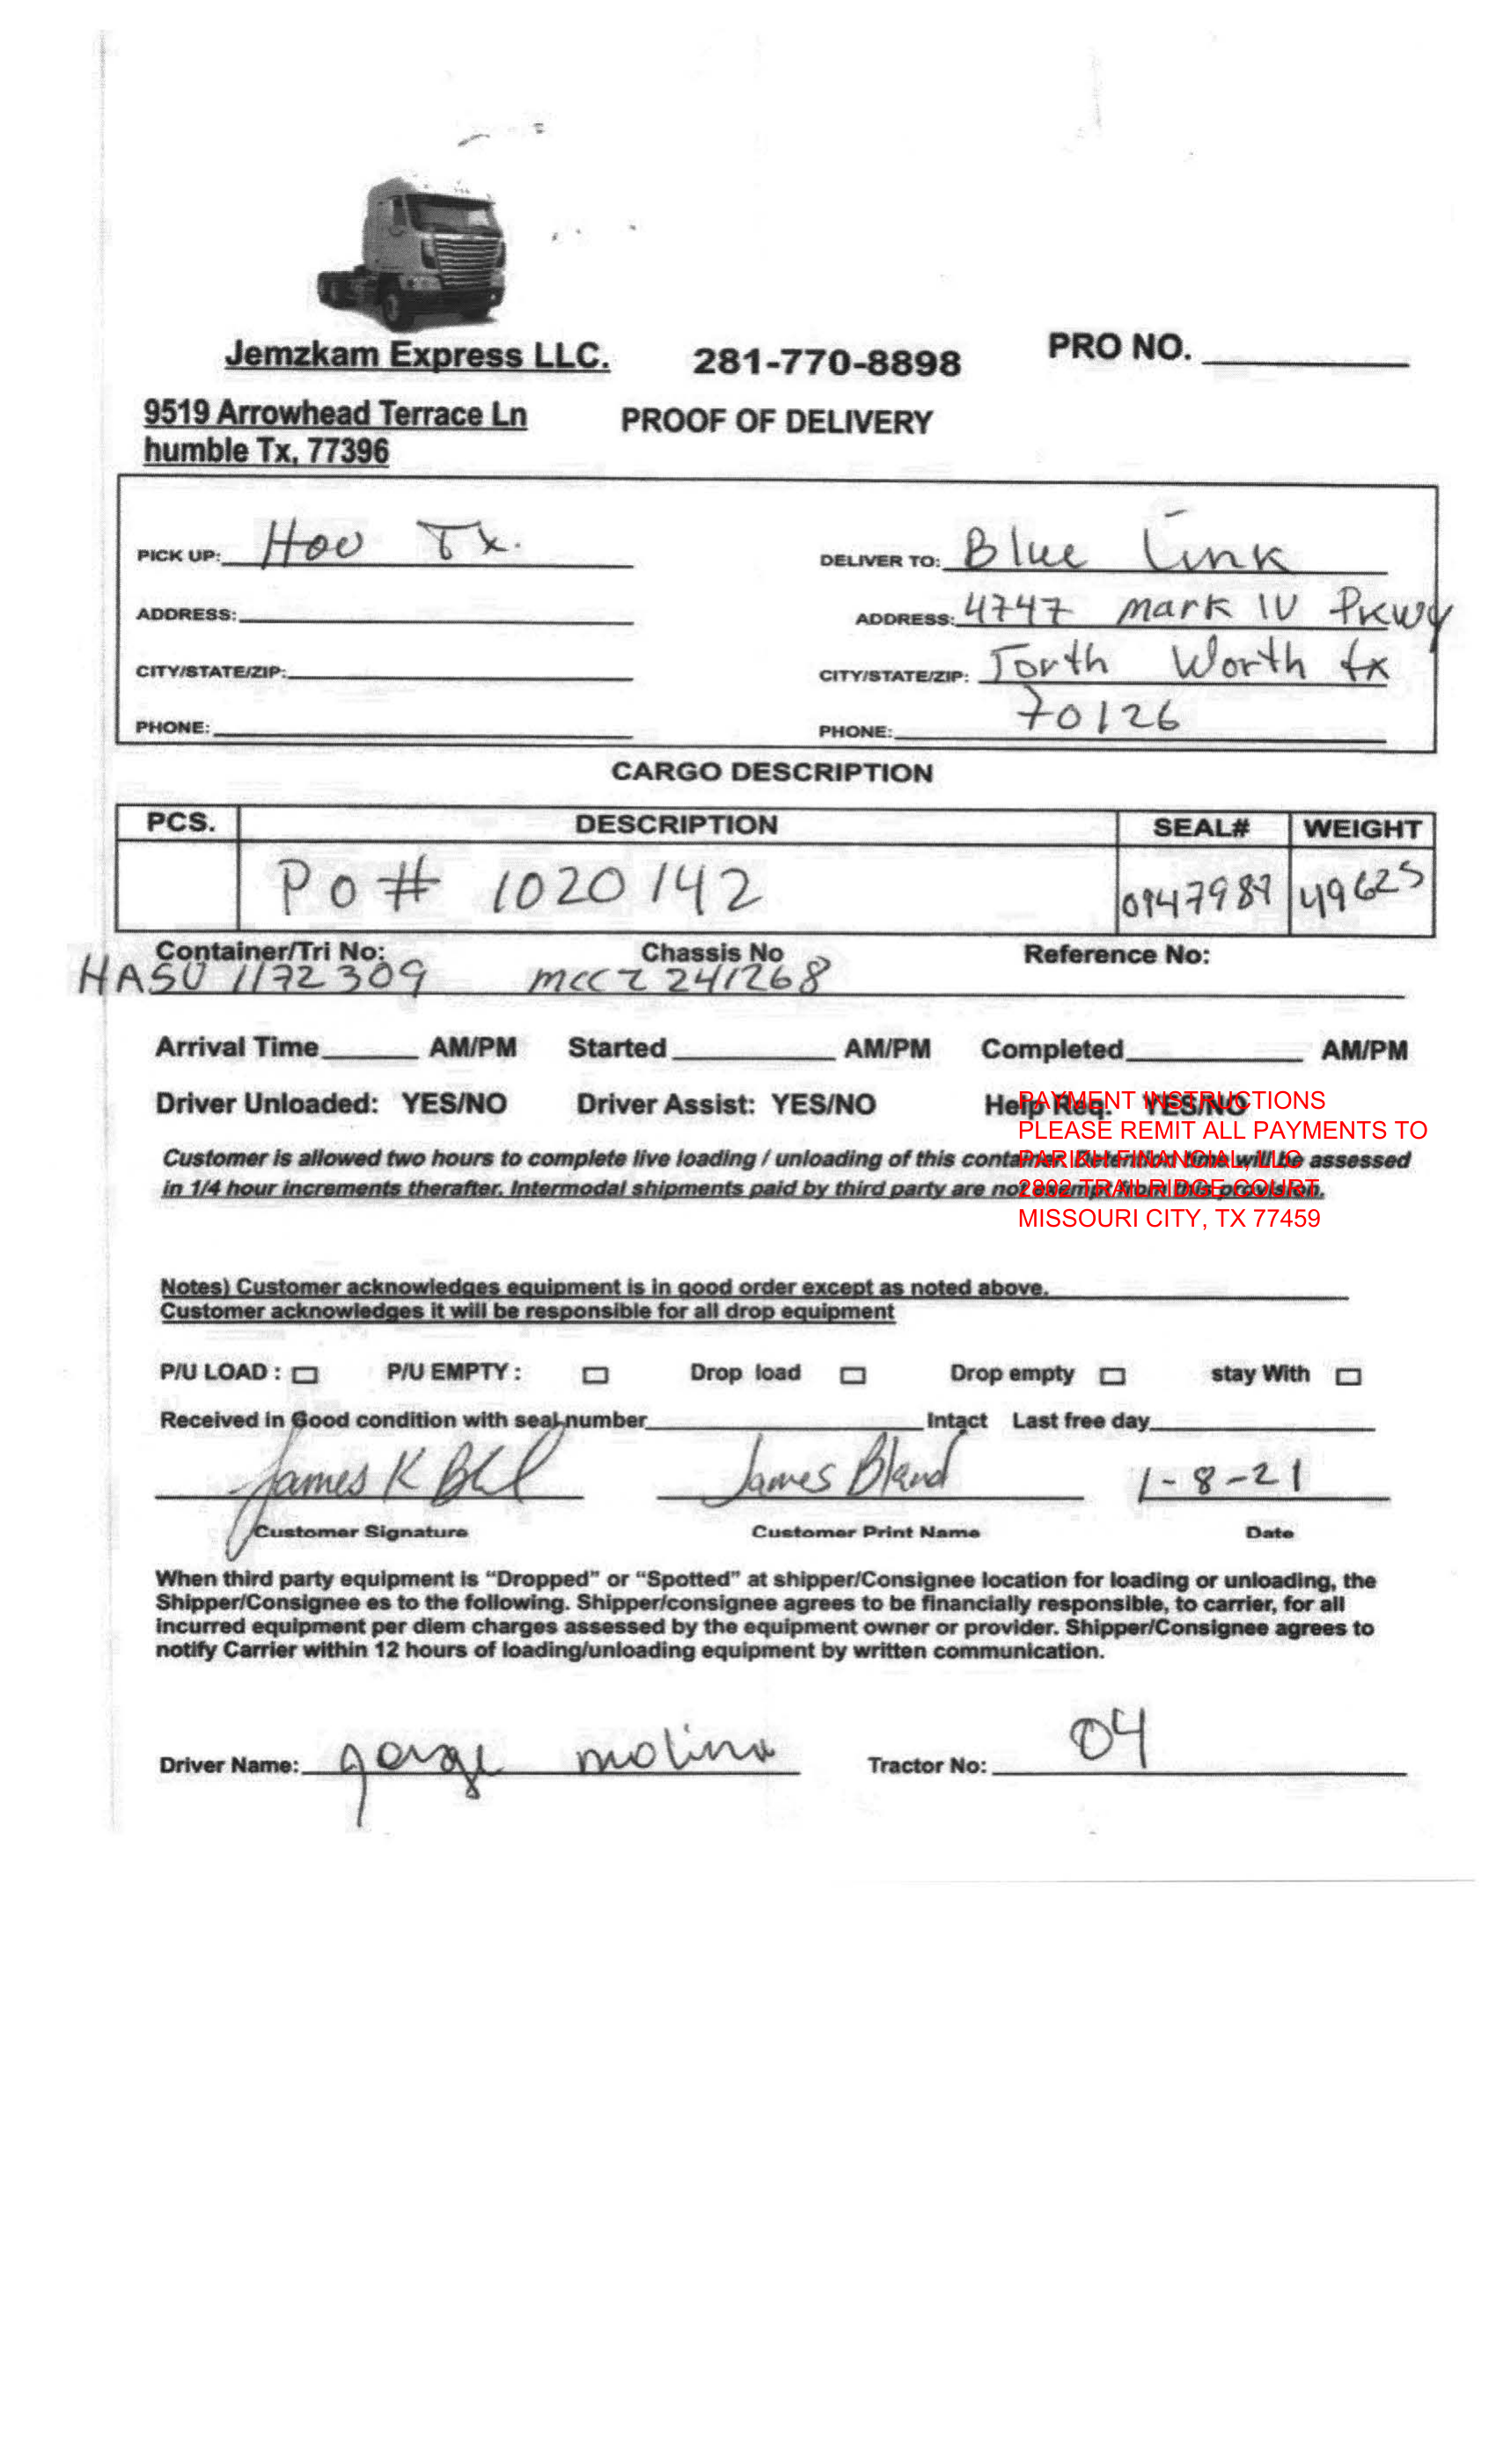 Jemzkam Express LLC. 281-770-8898 PRO NO.
9519 Arrowhead Terrace Ln PROOF OF DELIVERY
humble Tx, 77396
PICK UP: Hou Tx. DELIVER TO: Blue Link
ADDRESS: ADDRESS: 4747 mark IV Pkwy
CITY/STATE/ZIP: CITY/STATE/ZIP: Forth Worth tx
PHONE: PHONE: 70126
CARGO DESCRIPTION
PCS. DESCRIPTION SEAL# WEIGHT
Po# 1020142 0947989 49625
Container/Tri No: Chassis No Reference No:
HASU 1172309 MCCZ 241268
Arrival Time AM/PM Started AM/PM Completed AM/PM
Driver Unloaded: YES/NO Driver Assist: YES/NO Help Req. YES/NO
PAYMENT INSTRUCTIONS
PLEASE REMIT ALL PAYMENTS TO
PARIKH FINANCIAL, LLC
2802 TRAILRIDGE COURT
MISSOURI CITY, TX 77459
Customer is allowed two hours to complete live loading / unloading of this container. time will be assessed
in 1/4 hour increments therafter. Intermodal shipments paid by third party are not exempt from this provision.
Notes) Customer acknowledges equipment is in good order except as noted above.
Customer acknowledges it will be responsible for all drop equipment
P/U LOAD : P/U EMPTY : Drop load Drop empty stay With
Received in Good condition with seal number Intact Last free day
James K James Bland 1-8-21
Customer Signature Customer Print Name Date
When third party equipment is “Dropped” or “Spotted” at shipper/Consignee location for loading or unloading, the
Shipper/Consignee es to the following. Shipper/consignee agrees to be financially responsible, to carrier, for all
incurred equipment per diem charges assessed by the equipment owner or provider. Shipper/Consignee agrees to
notify Carrier within 12 hours of loading/unloading equipment by written communication.
Driver Name: molina Tractor No: 04